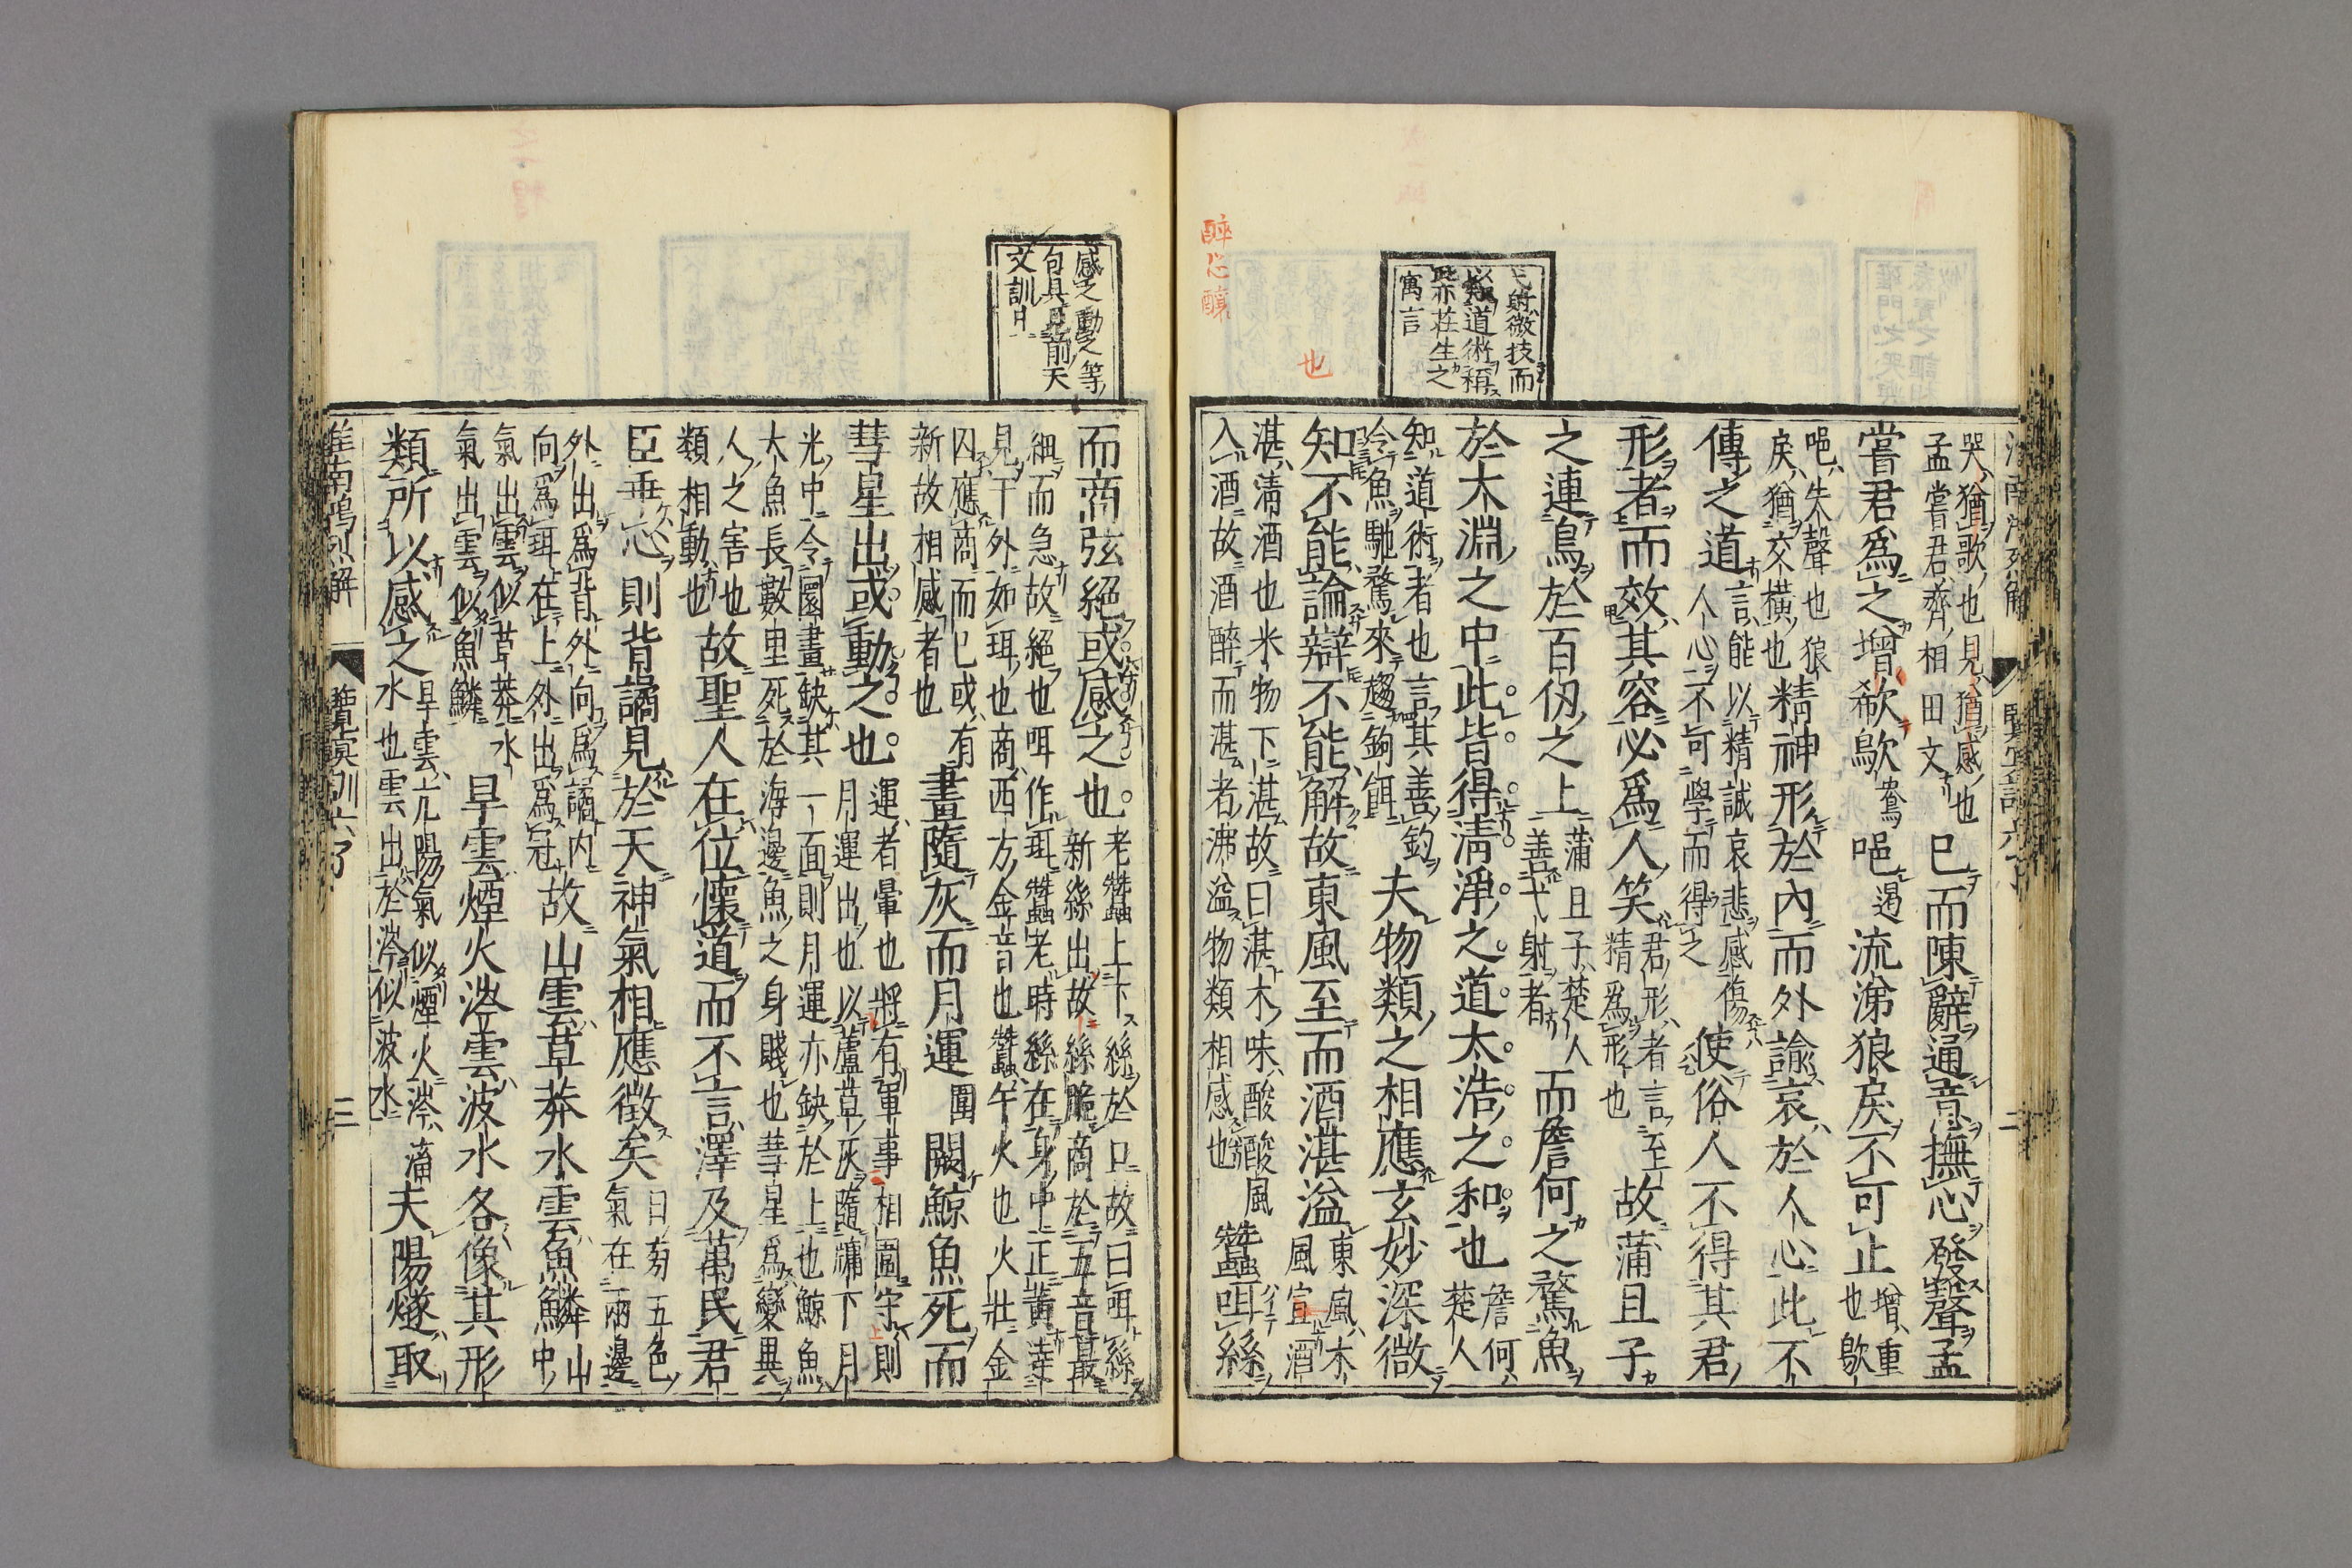 弋射微技而
以類道術稱
此亦莊生之
寓言
醉心釀
也
哭猶歌也見猶感也孟嘗君齊相田文已而陳辭通意撫心發聲孟
嘗君爲之增欷歍鴦唈遏流涕狼戾不可止增重也歍
唈朱聲也狼戾猶交橫也精神形於內而外諭哀於人心此不
傳之道言能以精誠哀悲感傷人心不可學而得之使俗人不得其君
形者而效其容必爲人笑君形者言至精爲形也故蒲且子
之連鳥於百仞之上蒲且子楚人善弋射者而詹何之騖魚
於大淵之中此皆得淸淨之道太浩之和也詹何楚人
知道術者也言其善釣令魚馳騖來趨鉤餌夫物類之相應玄妙深微
知不能論辯不能解故東風至而酒湛溢東風木風宣酒
湛淸酒也米物下湛故曰湛木味酸酸風入酒故酒醉而湛者沸溢物類相感也蠶咡絲
感之動之等
句具見前天
文訓中
而商弦絕或感之也老蠶上下絲於口故曰咡絲新絲出故絲脆商於五音最
細而急故絕也咡作珥蠶老時絲在身中正黃達見于外如珥也商西方金音也蠶午火也火壯金
囚應商而已或有新故相感者也畫隨灰而月運圍闕鯨魚死而
彗星出或動之也運者暈也將有軍事相圍守則月運出也以蘆草灰隨牖下月
光中令圜畫缺其一面則月運亦缺於上也鯨魚大魚長數里死於海邊魚之身賤也彗星爲變異
人之害也類相動也故聖人在位懷道而不言澤及萬民君
臣乖心則背譎見於天神氣相應徵矣日旁五色氣在兩邊
外出爲背外向爲譎內向爲珥在上外出爲冠故山雲草莽水雲魚鱗山中
氣出雲似草莽水氣出雲似魚鱗旱雲煙火涔雲波水各像其形
類所以感之旱雲亢陽氣似煙火涔潘水也雲出於涔似波水夫陽燧取
淮南鴻烈解 覽冥訓六 三